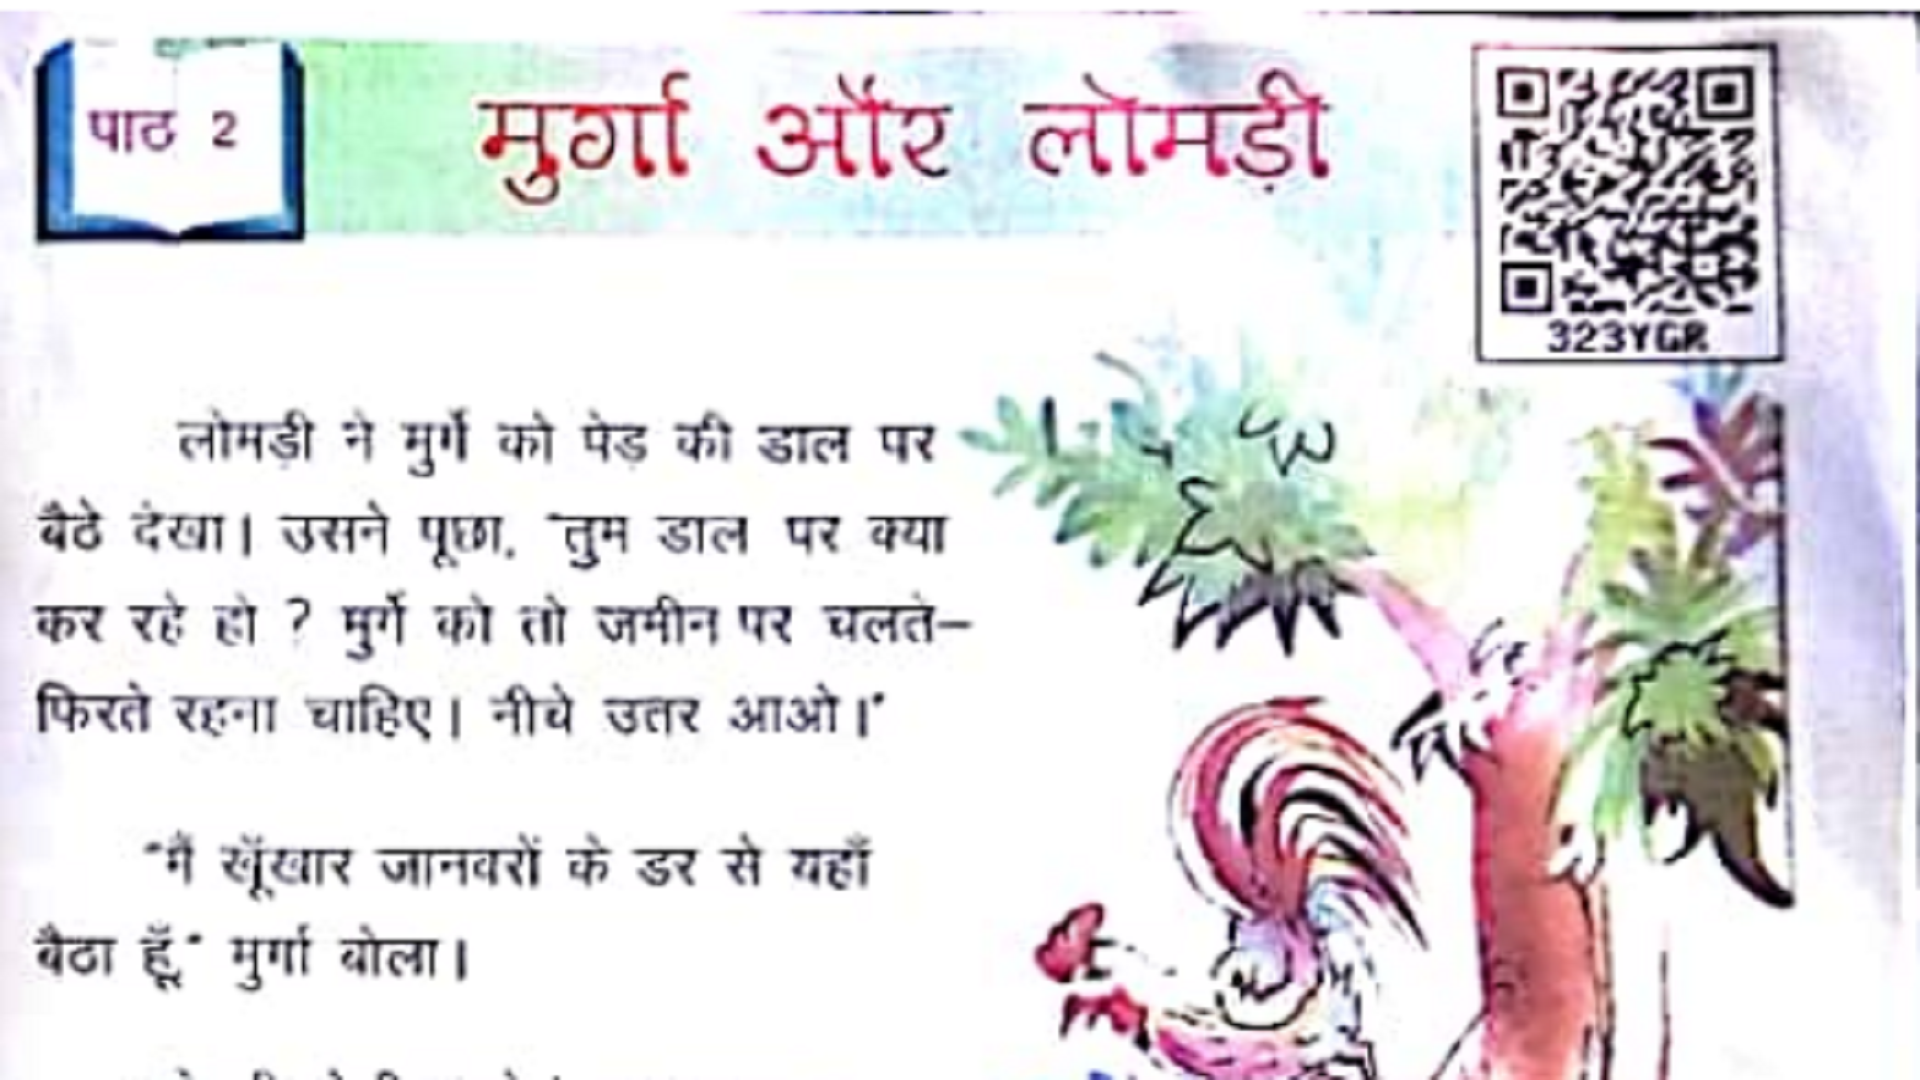 पाठ 2
मुर्गा और लोमड़ी
323YGR
लोमड़ी ने मुर्गे को पेड़ की डाल पर
बैठे देखा। उसने पूछा, "तुम डाल पर क्या
कर रहे हो ? मुर्गे को तो जमीन पर चलते–
फिरते रहना चाहिए। नीचे उतर आओ।"
"मैं खूँखार जानवरों के डर से यहाँ
बैठा हूँ" मुर्गा बोला।